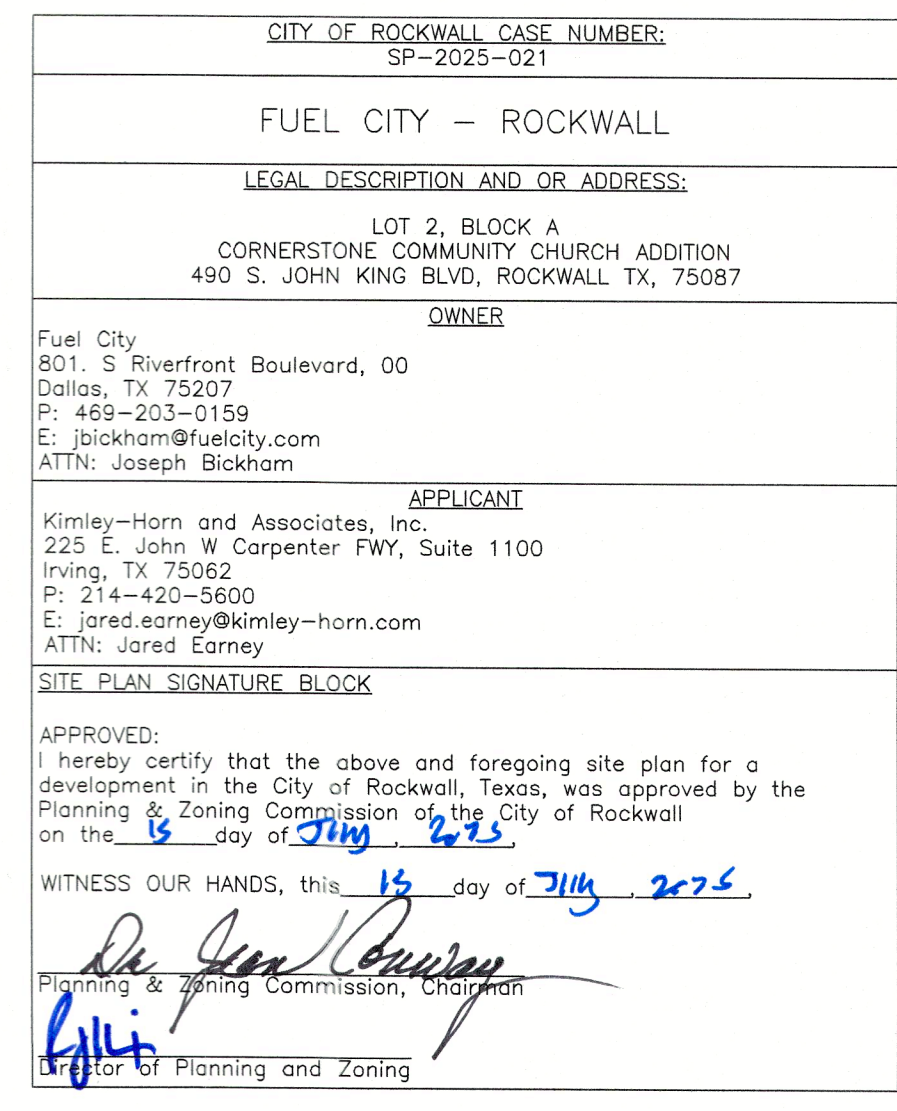 CITY OF ROCKWALL CASE NUMBER:
SP-2025-021
FUEL CITY - ROCKWALL
LEGAL DESCRIPTION AND OR ADDRESS:
LOT 2, BLOCK A
CORNERSTONE COMMUNITY CHURCH ADDITION
490 S. JOHN KING BLVD, ROCKWALL TX, 75087
OWNER
Fuel City
801. S Riverfront Boulevard, 00
Dallas, TX 75207
P: 469-203-0159
E: jbickham@fuelcity.com
ATTN: Joseph Bickham
APPLICANT
Kimley-Horn and Associates, Inc.
225 E. John W Carpenter FWY, Suite 1100
Irving, TX 75062
P: 214-420-5600
E: jared.earney@kimley-horn.com
ATTN: Jared Earney
SITE PLAN SIGNATURE BLOCK
APPROVED:
I hereby certify that the above and foregoing site plan for a
development in the City of Rockwall, Texas, was approved by the
Planning & Zoning Commission of the City of Rockwall
on the 15 day of July, 2025,
WITNESS OUR HANDS, this 15 day of July, 2025,
Dr Jean Conway
Planning & Zoning Commission, Chairman
Director of Planning and Zoning